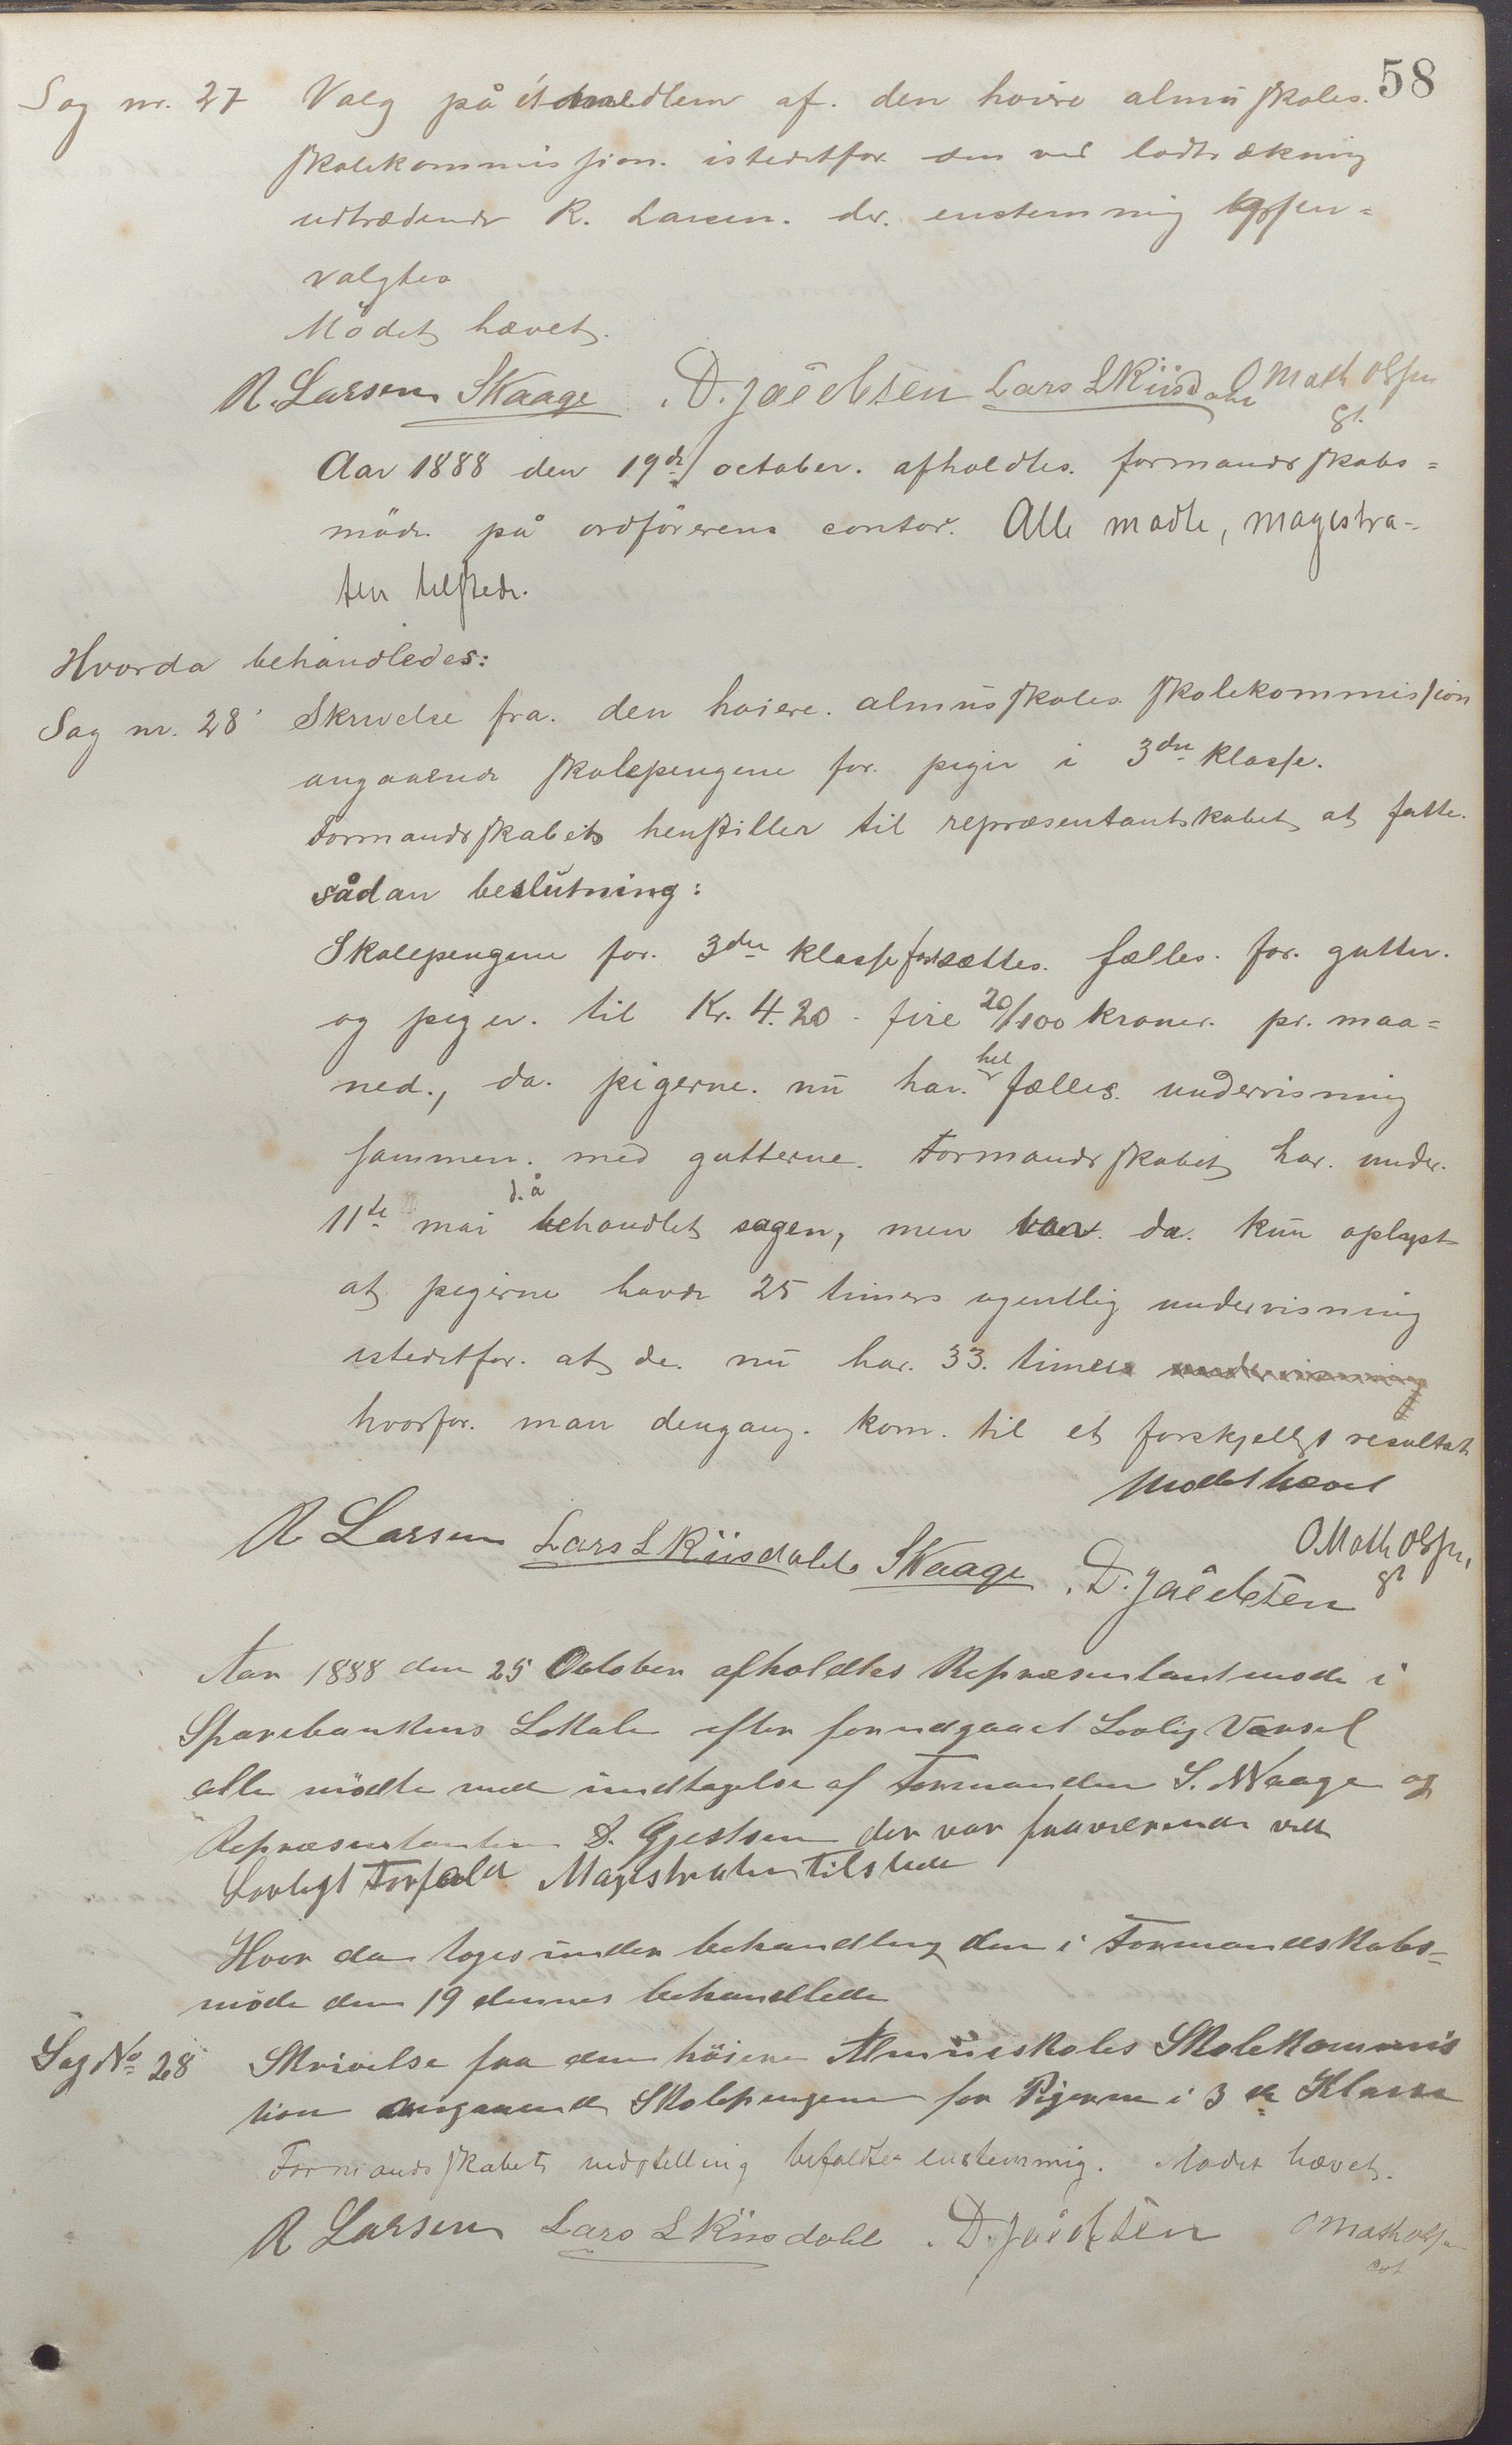 58
Sag nr. 27 Valg på ét medlem af. den høiere almuskoles.
skolekommission. istedetfor. den ved lodtrækning
udtrædende R. Larsen. der. enstemmig
valgtes
Mödet hævet.
R. Larsen S Waage D. Jaedtsen Lars L Kiisdahl O Math Olsen
gt.
Aar 1888 den 19de october. afholdtes. formandsskabs=
möde på ordförerens contor. Alle mødte, magistra-
ten tilstede.
Hvorda behandledes:
Sag nr. 28 Skrivelse fra. den høiere. almuskoles skolekommission
angaaende skolepengene for. piger i 3die klasse.
Formandsskabet henstiller til repræsentantskabet at fatte.
sådan beslutning:
Skolepengene for. 3die klasse fastsættes. fælles. for. gutter.
og piger. til Kr. 4.20 - fire 20/100 kroner. pr. maa=
ned., da. pigerne. nu har. hel fælles. undervisning
sammen. med gutterne. Formandsskabet har. under.
11te mai d.å behandlet sagen, men var. da. kun oplyst
at pigerne havde 25 timers ugentlig undervisning
istedetfor. at de. nu har. 33. timer undervisning
hvorfor. man dengang. kom. til et forskjelligt resultat
Mødet hævet
R Larsen Lars L Kiisdahl S Waage D. Jaedtsen O Math Olsen,
gt
Aar 1888 den 25 October afholdtes Repræsentantmøde i
Sparebankens Lokale efter forudgaaet Lovlig Varsel
alle mödte med undtagelse af Formanden S. Waage og
Repræsentanten D. Gjestsen der var fraværende ved
Lovligt Forfald Magistraten tilstede
Hvor da toges under behandling den i Formandskabs-
møde den 19 dennes behandlede
Sag No 28 Skrivelse fra den höiere Almueskoles Skolekommis
tion angaaende Skolepengene for Pigerne i 3de Klasse
Formandsskabets indstilling bifaldtes enstemmig. Mødet hævet.
R Larsen Lars L Kiisdahl D. Jaedtsen O Math Olsen